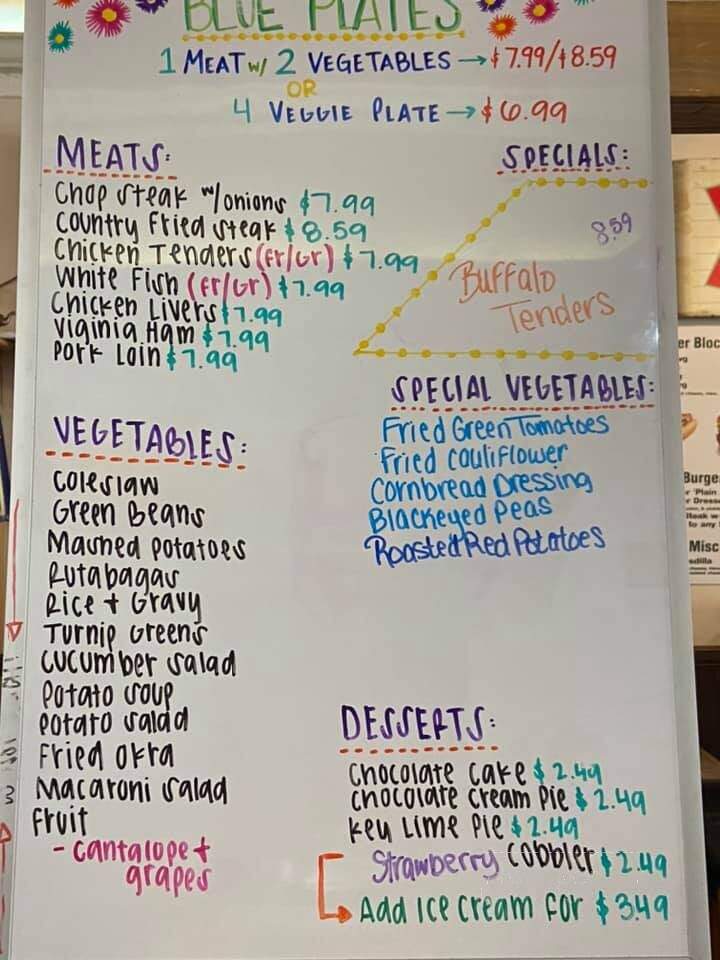 BLUE PLATES
1 MEAT w/ 2 VEGETABLES → $7.99/$8.59
OR
4 VEGGIE PLATE → $6.99
MEATS:
Chop Steak w/onions $7.99
Country Fried Steak $8.59
Chicken Tenders (Fr/Gr) $7.99
White Fish (Fr/Gr) $7.99
Chicken Livers $7.99
Viginia Ham $7.99
Pork Loin $7.99
SPECIALS:
8.59
Buffalo
Tenders
SPECIAL VEGETABLES:
Fried Green Tomatoes
Fried Couliflower
Cornbread Dressing
Blackeyed Peas
Roasted Red Potatoes
VEGETABLES:
Coleslaw
Green Beans
Mashed Potatoes
Rutabagas
Rice + Gravy
Turnip Greens
Cucumber Salad
Potato Soup
Potato Salad
Fried Okra
Macaroni Salad
Fruit
- Cantalope +
grapes
DESSERTS:
Chocolate Cake $2.49
Chocolate Cream Pie $2.49
Key Lime Pie $2.49
Strawberry Cobbler $2.49
Add Ice Cream for $3.49
er Bloc
Burge
r 'Plain
r Dress
Steak w
to any
Misc
sadilla